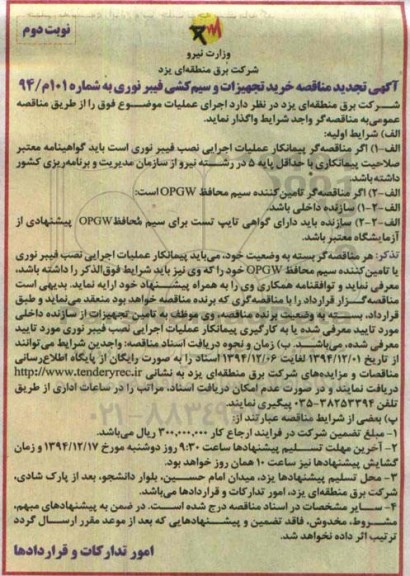 نوبت دوم
وزارت نیرو
شرکت برق منطقه‌ای یزد
آگهی تجدید مناقصه خرید تجهیزات و سیم‌کشی فیبر نوری به شماره ۱۰۱م/۹۴
شرکت برق منطقه‌ای یزد در نظر دارد اجرای عملیات موضوع فوق را از طریق مناقصه
عمومی به مناقصه‌گر واجد شرایط واگذار نماید.
الف) شرایط اولیه:
الف-۱) اگر مناقصه‌گر پیمانکار عملیات اجرایی نصب فیبر نوری است باید گواهینامه معتبر
صلاحیت پیمانکاری با حداقل پایه ۵ در رشته نیرو از سازمان مدیریت و برنامه‌ریزی کشور
داشته باشد.
الف-۲) اگر مناقصه‌گر تامین‌کننده سیم محافظ OPGW است:
الف-۲-۱) سازنده داخلی باشد.
الف-۲-۲) سازنده باید دارای گواهی تایپ تست برای سیم مُحافظ OPGW پیشنهادی از
آزمایشگاه معتبر باشد.
تذکر: هر مناقصه‌گر بسته به وضعیت خود، می‌باید پیمانکار عملیات اجرایی نصب فیبر نوری
یا تامین‌کننده سیم محافظ OPGW خود را که وی نیز باید شرایط فوق‌الذکر را داشته باشد،
معرفی نماید و توافقنامه همکاری وی را به همراه پیشنهاد خود ارایه نماید. بدیهی است
مناقصه‌گزار قرارداد را با مناقصه‌گری که برنده مناقصه خواهد بود منعقد می‌نماید و طبق
قرارداد، بسته به وضعیت برنده مناقصه وی موظف به تامین تجهیزات از سازنده داخلی
مورد تایید معرفی شده یا به کارگیری پیمانکار عملیات اجرایی نصب فیبر نوری مورد تایید
معرفی شده، می‌باشد. ب) زمان و نحوه دریافت اسناد مناقصه: واجدین شرایط می‌توانند
از تاریخ ۱۳۹۴/۱۲/۰۱ لغایت ۱۳۹۴/۱۲/۰۶ اسناد را به صورت رایگان از پایگاه اطلاع‌رسانی
مناقصات و مزایده‌های شرکت برق منطقه‌ای یزد به نشانی http://www.tenderyrec.ir
دریافت نمایند و در صورت عدم امکان دریافت اسناد، مراتب را در ساعات اداری از طریق
تلفن ۳۸۲۵۳۳۹۴-۰۳۵ پیگیری نمایند.
پ) بعضی از شرایط مناقصه عبارتند از:
۱- مبلغ تضمین شرکت در فرایند ارجاع کار ۳۰۰,۰۰۰,۰۰۰ ریال می‌باشد.
۲- آخرین مهلت تسلیم پیشنهادها ساعت ۹:۳۰ روز دوشنبه مورخ ۱۳۹۴/۱۲/۱۷ و زمان
گشایش پیشنهادها نیز ساعت ۱۰ همان روز خواهد بود.
۳- محل تسلیم پیشنهادها یزد، میدان امام حسین، بلوار دانشجو، بعد از پارک شادی،
شرکت برق منطقه‌ای یزد، امور تدارکات و قراردادها می‌باشد.
۴- سایر مشخصات در اسناد مناقصه درج شده است. در ضمن به پیشنهادهای مبهم،
مشروط، مخدوش، فاقد تضمین و پیشنهادهایی که بعد از موعد مقرر ارسال گردد
ترتیب اثر داده نخواهد شد.
امور تدارکات و قراردادها